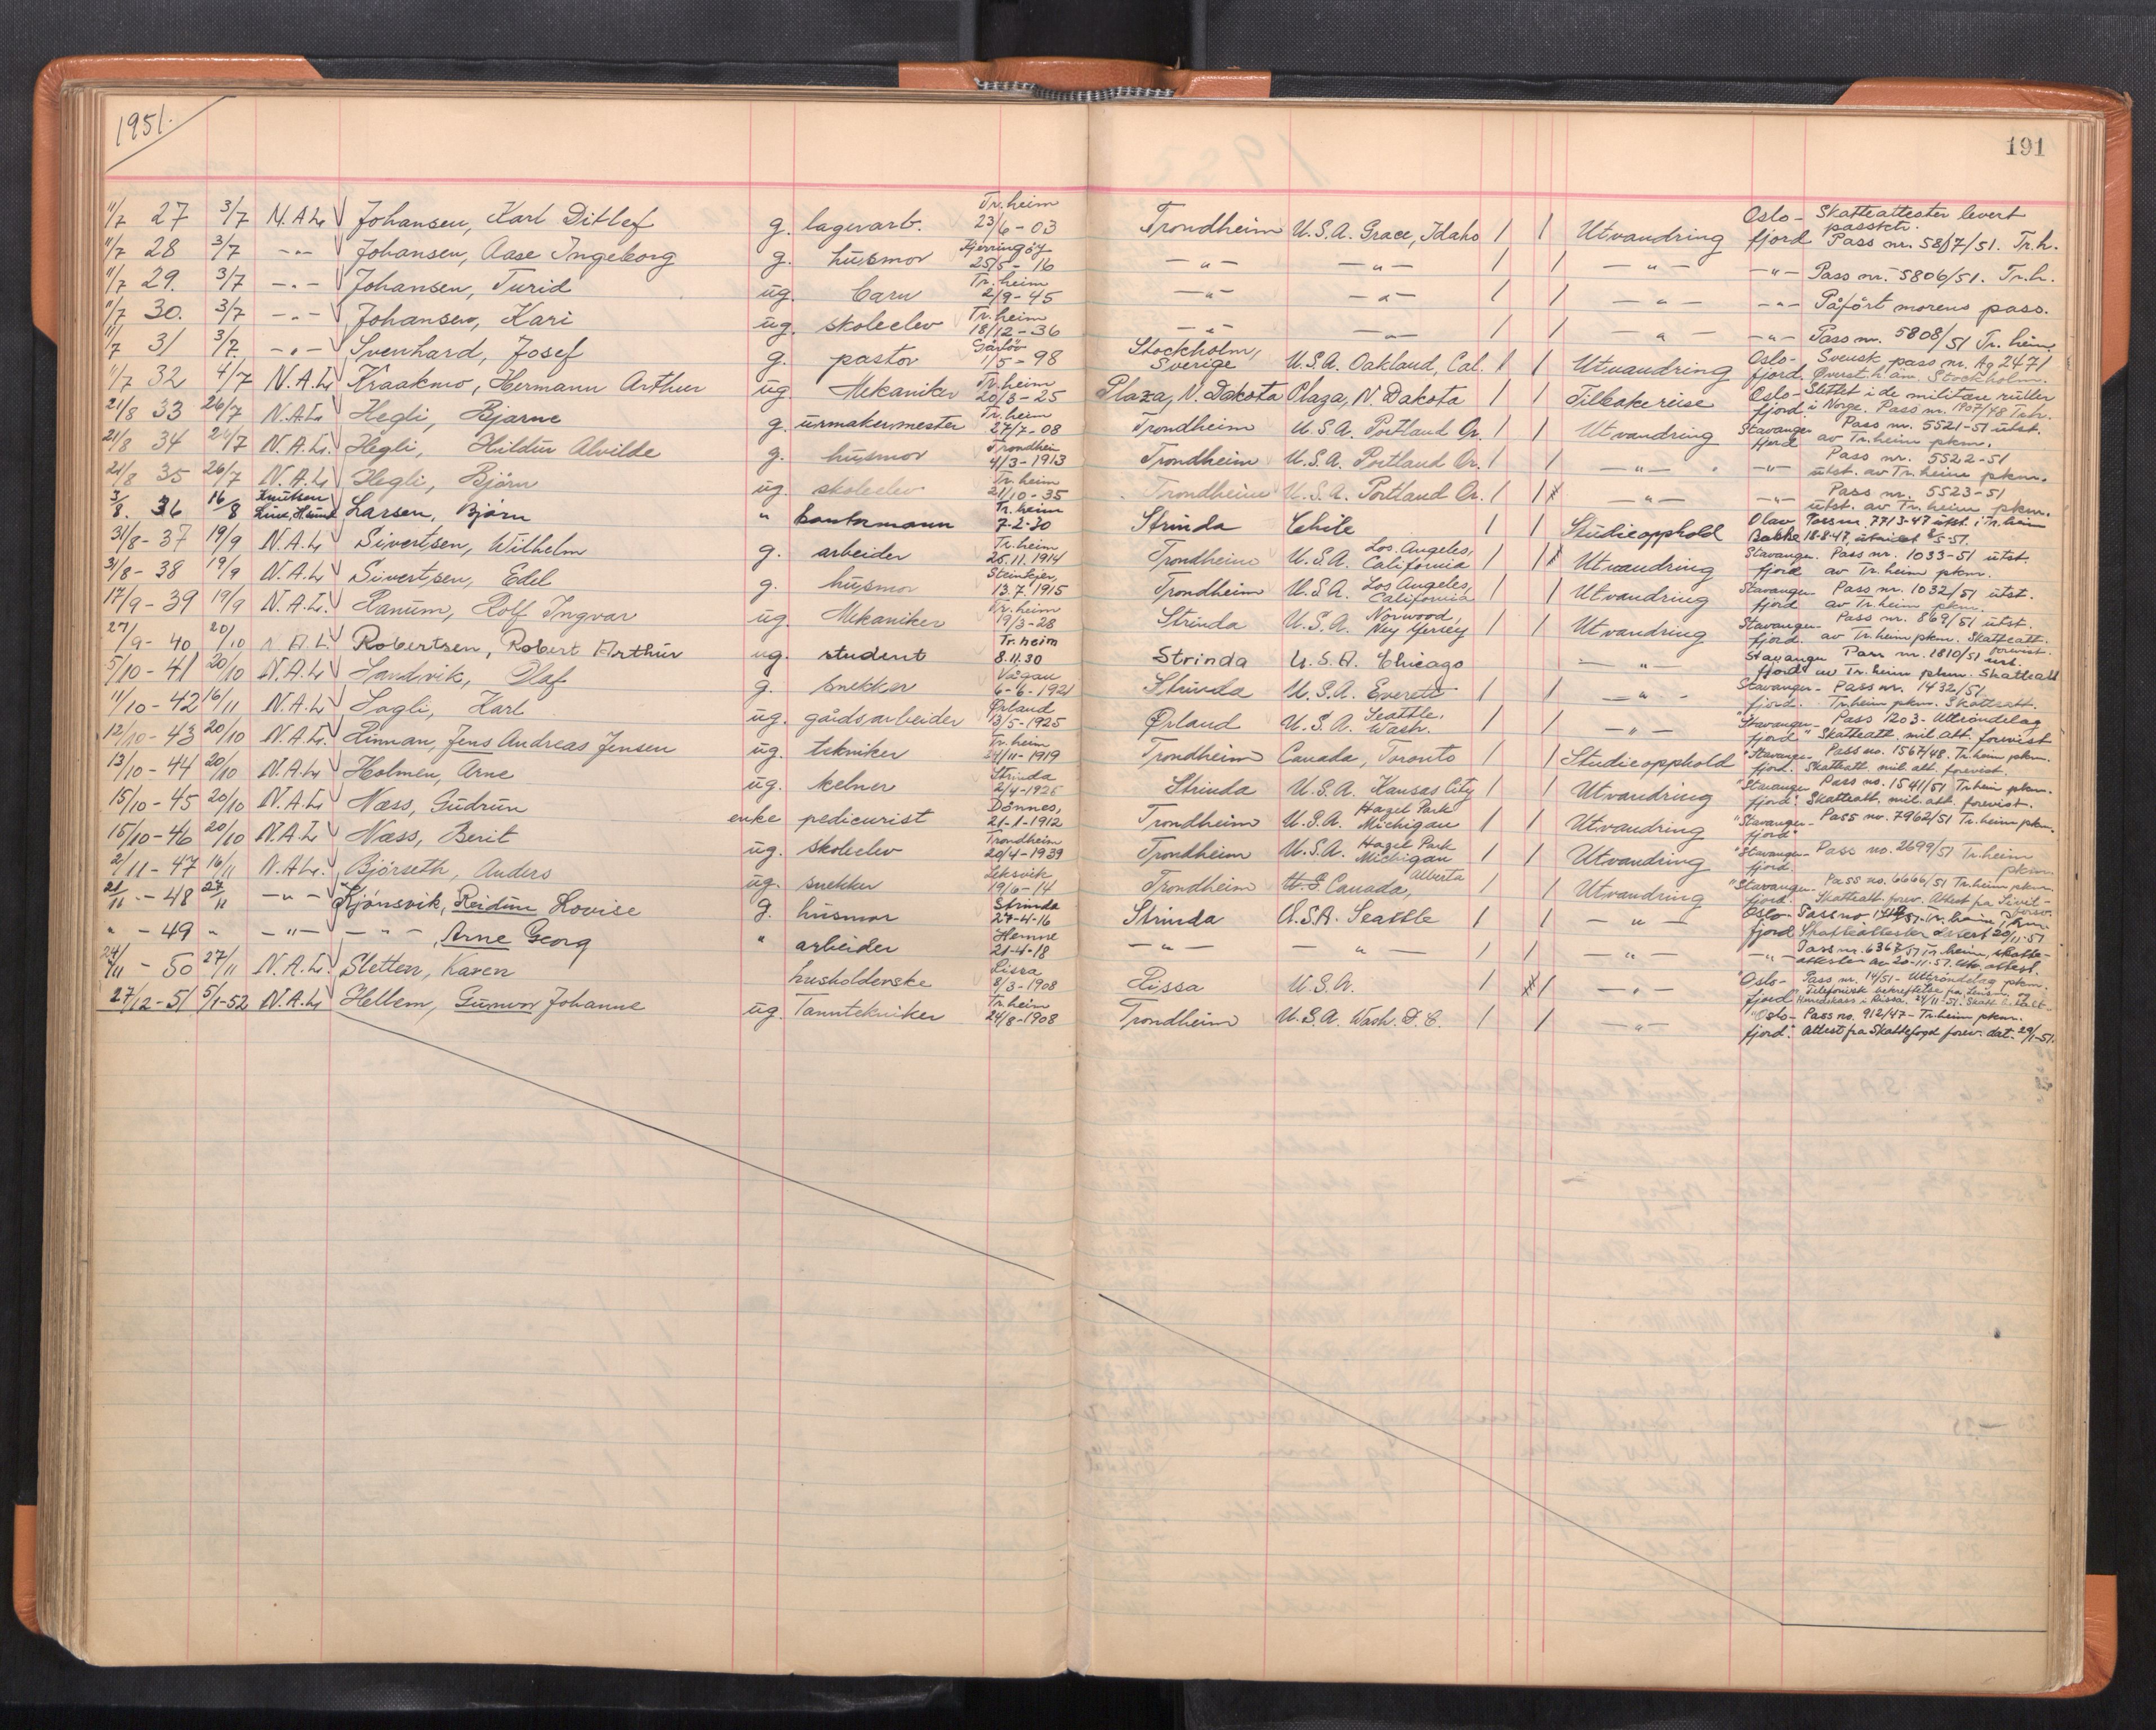 1951.
191
11/7 27 3/7 N.A.L. Johansen, Karl Ditlef g. lagerarb. Tr.heim 23/6-03 Trondheim U.S.A. Grace, Idaho 1 1 Utvandring Oslofjord Skatteattester levert passktr. Pass nr. 5817/51. Tr.h.
11/7 28 3/7 -"- Johansen, Aase Ingeborg g. husmor Kjerringøy 25/5-16 -"- -"- 1 1 -"- -"- Pass nr. 5806/51. Tr.h.
11/7 29. 3/7 -"- Johansen, Turid ug. barn Tr.heim 2/9-45 -"- -"- 1 1 -"- -"- Påført morens pass.
11/7 30. 3/7 -"- Johansen, Kari ug. skoleelev Tr.heim 18/12-36 -"- -"- 1 1 -"- -"- Pass nr. 5808/51 Tr.heim
11/7 31 3/7 -"- Svenhard, Josef g. pastor 1/5-98 Stockholm, Sverige U.S.A. Oakland, Cal. 1 1 Utvandring Oslofjord Svensk pass nr. Ag 2471 Øverst.h.äm. Stockholm.
11/7 32 4/7 N.A.L. Kraakmo, Hermann Arthur ug. Mekaniker Tr.heim 20/3-25 Plaza, N. Dakota Plaza, N. Dakota 1 1 Tilbakereise Oslofjord Slettet i de militære ruller i Norge. Pass nr. 1907/48 Trh.
21/8 33 26/7 N.A.L. Hegli, Bjarne g. urmakermester Tr.heim 27/7-08 Trondheim U.S.A. Portland Or. 1 1 Utvandring Stavangerfjord Pass nr. 5521-51 utst. av Tr.heim pkm.
21/8 34 26/7 N.A.L. Hegli, Hildur Alvilde g. husmor Trondheim 4/3-1913 Trondheim U.S.A. Portland Or. 1 1 -"- -"- Pass nr. 5522-51 utst. av Tr.heim pkm.
21/8 35 26/7 N.A.L. Hegli, Bjørn ug. skoleelev Tr.heim 21/10-35 Trondheim U.S.A. Portland Or. 1 1 -"- -"- Pass nr. 5523-51 utst. av Tr.heim pkm.
3/8. 36 16/8 Knutsen Line, Haugesund Larsen, Bjørn " kontormann Tr.heim 7-2-30 Strinda Chile 1 1 Studieopphold Olav Bakke Pass nr. 7713-47 utst. i Tr.heim 18-8-47,
31/8-37 19/9 N.A.L. Sivertsen, Wilhelm g. arbeider Tr.heim 25.11.1914 Trondheim U.S.A. Los Angeles, California 1 1 Utvandring Stavangerfjord Pass nr. 1033-51 utst. av Tr.heim pkm.
31/8-38 19/9 N.A.L. Sivertsen, Edel g. husmor Steinkjer, 13.7.1915 Trondheim U.S.A. Los Angeles, California 1 1 Utvandring Stavangerfjord Pass nr. 1032/51 utst. av Tr.heim pkm.
17/9-39 19/9 N.A.L. Ranum, Rolf Ingvar ug. Mekaniker Tr.heim 19/3-28 Strinda U.S.A. Norwood, Ney Yersey 1 1 Utvandring Stavangerfjord. Pass nr. 869/51 utst. av Tr.heim pkm. Skatteatt. forevist.
27/9-40 20/10 N.A.L. Robertsen, Robert Arthur ug. student Tr.heim 8.11.30 Strinda U.S.A. Chicago -"- Stavangerfjord Pass nr. 1810/51 utst. av Tr.heim pkm. Skatteatt
5/10-41 20/10 N.A.L. Sandvik, Olaf g. snekker Vågan 6-6-1921 Strinda U.S.A. Everett 1 1 -"- Stavangerfjord. Pass nr. 1432/51 Tr.heim pkm. Skatteatt.
11/10-42 16/11 N.A.L. Sagli, Karl ug. gårdsarbeider Ørland 13/5-1925 Ørland U.S.A. Seattle, Wash. 1 1 -"- "Stavangerfjord" Pass 1203-Uttröndelag Skatteatt. mil. att. forevist
12/10-43 20/10 N.A.L. Rinnan, Jens Andreas Jensen ug. tekniker Tr.heim 24/11-1919 Trondheim Canada, Toronto 1 1 Studieopphold "Stavangerfjord". Pass no. 1567/48. Tr.heim pkm. Skatteatt. mil. att. forevist.
13/10-44 20/10 N.A.L. Holmen, Arne ug. kelner Strinda 2/4-1926 Strinda U.S.A. Kansas City 1 1 Utvandring "Stavangerfjord". Pass no. 1541/51 Tr.heim pkm. Skatteatt. mil. att. forevist.
15/10-45 20/10 N.A.L. Næss, Gudrun enke pedicurist Dønnes, 21-1-1912 Trondheim U.S.A. Hazel Park Michigan 1 1 Utvandring "Stavangerfjord" Pass no. 7962/51 Tr.heim pkm.
15/10-46 20/10 N.A.L. Næss, Berit ug. skoleelev Trondheim 20/4-1939 Trondheim U.S.A. Hazel Park Michigan 1 1 Utvandring "Stavangerfjord. Pass no. 2699/51 Tr.heim pkm.
2/11-47 16/11 N.A.L. Bjørseth, Anders ug. snekker Leksvik 19/6-14 Trondheim U.S. Canada, Alberta 1 1 Utvandring "Stavangerfjord. Pass no. 6666/51 Tr.heim pkm. Skatteatt. forev. Attest fra Sivilforsv.
21/11-48 27/11 -"- Kjønsvik, Reidun Lovise g. husmor Strinda 27-4-16 Strinda U.S.A. Seattle 1 1 -"- Oslofjord Tr.heim, Skatteattester levert 20/11-51
"-49 " -"- -"-, Arne Georg " arbeider Hemne 21-4-18 -"- -"- 1 1 -"- -"- Pass nr. 6367/51 Tr.heim, skatteattester av 20-11-51.
24/11-50 27/11 N.A.L. Sletten, Karen husholderske Rissa 8/3-1908 Rissa U.S.A. 1 1 -"- "Oslofjord" Pass nr. 14/51-Uttröndelag pkm. Telefonisk bekreftelse fra Lensm. og Herredskass. i Rissa. 24/11-51.
27/12-51 5/1-52 N.A.L. Hellem, Gunvor Johanne ug. Tanntekniker Tr.heim 24/8-1908 Trondheim U.S.A. Wash. D.C. 1 1 -"- "Oslofjord". Pass no. 912/47-Tr.heim pkm. Attest fra Skattefogd forev. dat. 29/1-51.